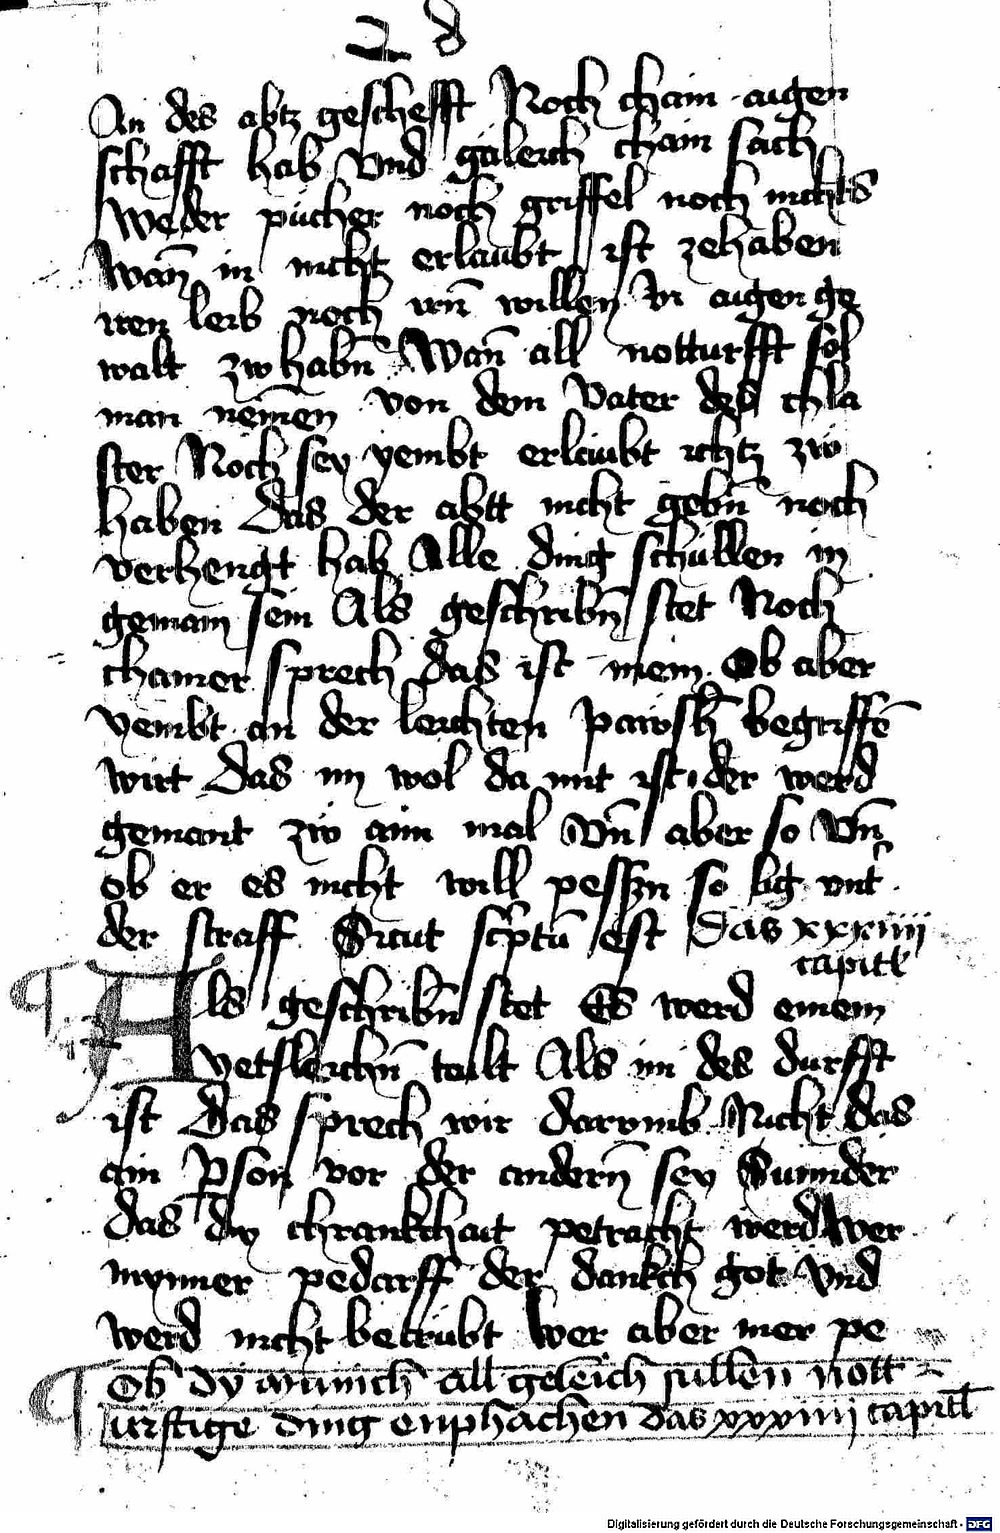 2 d
An des abtz geschefft Noch chain aigen
schafft hab Vnd gäleich chain sach
Weder pücher noch griffel noch nichts
Wan̄ in nicht erlaubt ist zehaben
iren leib noch irn̄ willen In aigen ge
walt zw habn̄ Wan̄ all notturfft sol
man nem̄en von dem Vater des chla
ster Noch sey yembt erlaubt ichtz zw
haben Das der abtt nicht gebn̄ noch
verhengt hab Alle ding schüllen in
gemain sein Als geschribn̄ stet Noch
chainer sprech das ist mein Ob aber
yembt an der leichten pawsh̄ begriffē
wirt Das im wol da mit ist der werd
gemant zw aim mal Vn̄ aber so Vn̄
ob er es nicht will pessn so lig vnt̉
der straff Sicut sc̉ptū est Das xxxiiii
capitl̉
Als geschribn̄ stet Es werd einem
yetsleichn̄ tailt Als im des durfft
ist Das sprech wir darvmb Nicht das
ain Pson vor der andern̄ sey Sunnder
das dy chrankchait petracht werd Wer
mynner pedarff der dankch got Vnd
Werd nicht betrübt Wer aber mer pe
Ob dy münich all geleich sullen nott
urftige ding enphachen das xxxiiii capitl̄
Digitalisierung gefördert durch die Deutsche Forschungsgemeinschaft - DFG